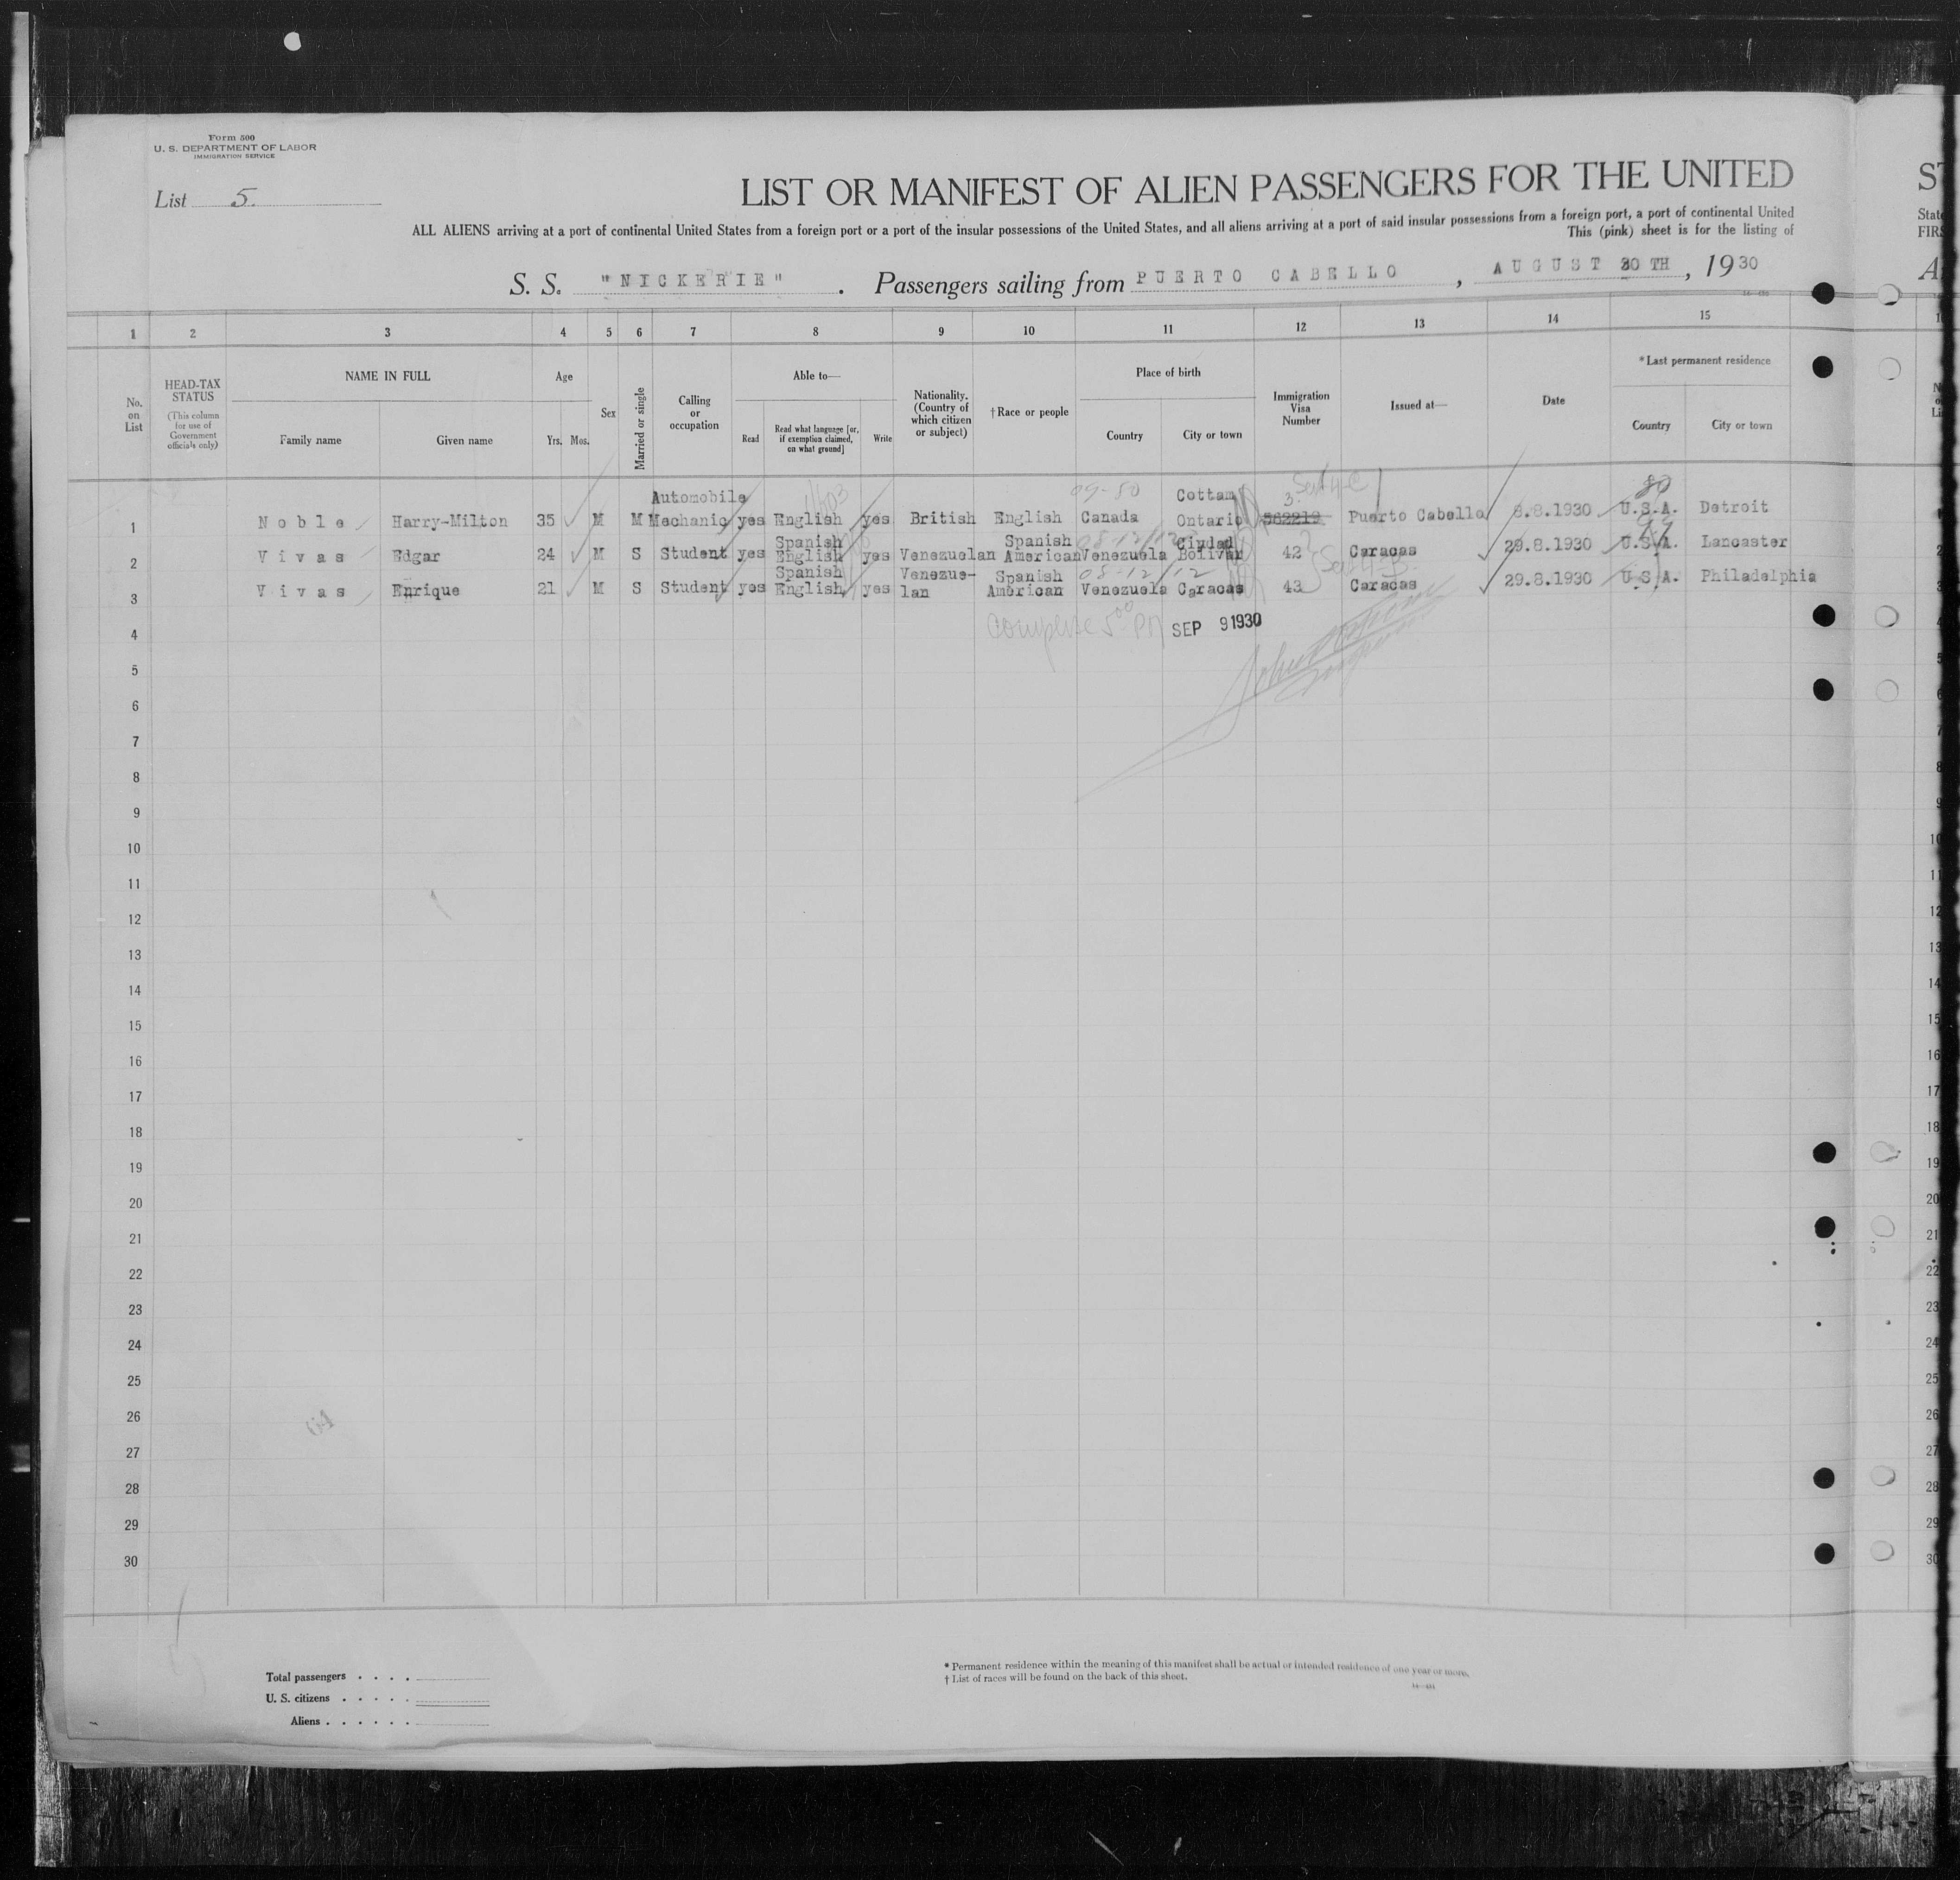 Form 500
U. S. DEPARTMENT OF LABOR
IMMIGRATION SERVICE
List 5.
LIST OR MANIFEST OF ALIEN PASSENGERS FOR THE UNITED
ALL ALIENS arriving at a port of continental United States from a foreign port or a port of the insular possessions of the United States, and all aliens arriving at a port of said insular possessions from a foreign port, a port of continental United
This (pink) sheet is for the listing of
S. S. "NICKERIE". Passengers sailing from PUERTO CABELLO, AUGUST 30 TH, 1930
1 2 3 4 5 6 7 8 9 10 11 12 13 14 15
No. on List
HEAD-TAX STATUS
(This column for use of Government officials only)
NAME IN FULL
Family name Given name
Age
Yrs. Mos.
Sex
Married or single
Calling or occupation
Able to—
Read
Read what language [or, if exemption claimed, on what ground]
Write
Nationality. (Country of which citizen or subject)
†Race or people
Place of birth
Country City or town
Immigration Visa Number
Issued at—
Date
*Last permanent residence
Country City or town
1 Noble Harry-Milton 35 M M Automobile Mechanic yes English yes British English Canada Cottam Ontario 3. 562219 Puerto Cabello 8.8.1930 U.S.A. Detroit
2 Vivas Edgar 24 M S Student yes Spanish English yes Venezuelan Spanish American Venezuela Ciudad Bolivar 42 Caracas 29.8.1930 U.S.A. Lancaster
3 Vivas Enrique 21 M S Student yes Spanish English yes Venezue-lan Spanish American Venezuela Caracas 43 Caracas 29.8.1930 U.S.A. Philadelphia
09-80
08-12/12
80
99
4 Complete 5 00 PM SEP 9 1930
5
6
7
8
9
10
11
12
13
14
15
16
17
18
19
20
21
22
23
24
25
26
27
28
29
30
Total passengers . . . .
U. S. citizens . . . . .
Aliens . . . . . .
* Permanent residence within the meaning of this manifest shall be actual or intended residence of one year or more.
† List of races will be found on the back of this sheet.